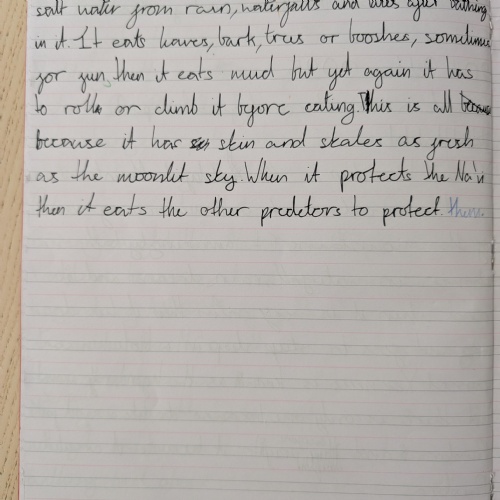 salt water from rain, waterfalls and after bathing
in it. It eats leaves, bark, trees or booshes, sometimes
for fun, then it eats mud but yet again it has
to roll or climb it before eating. This is all
because it has skin and skales as fresh
as the moonlit sky. When it protects the Na'vi
then it eats the other predetors to protect them.